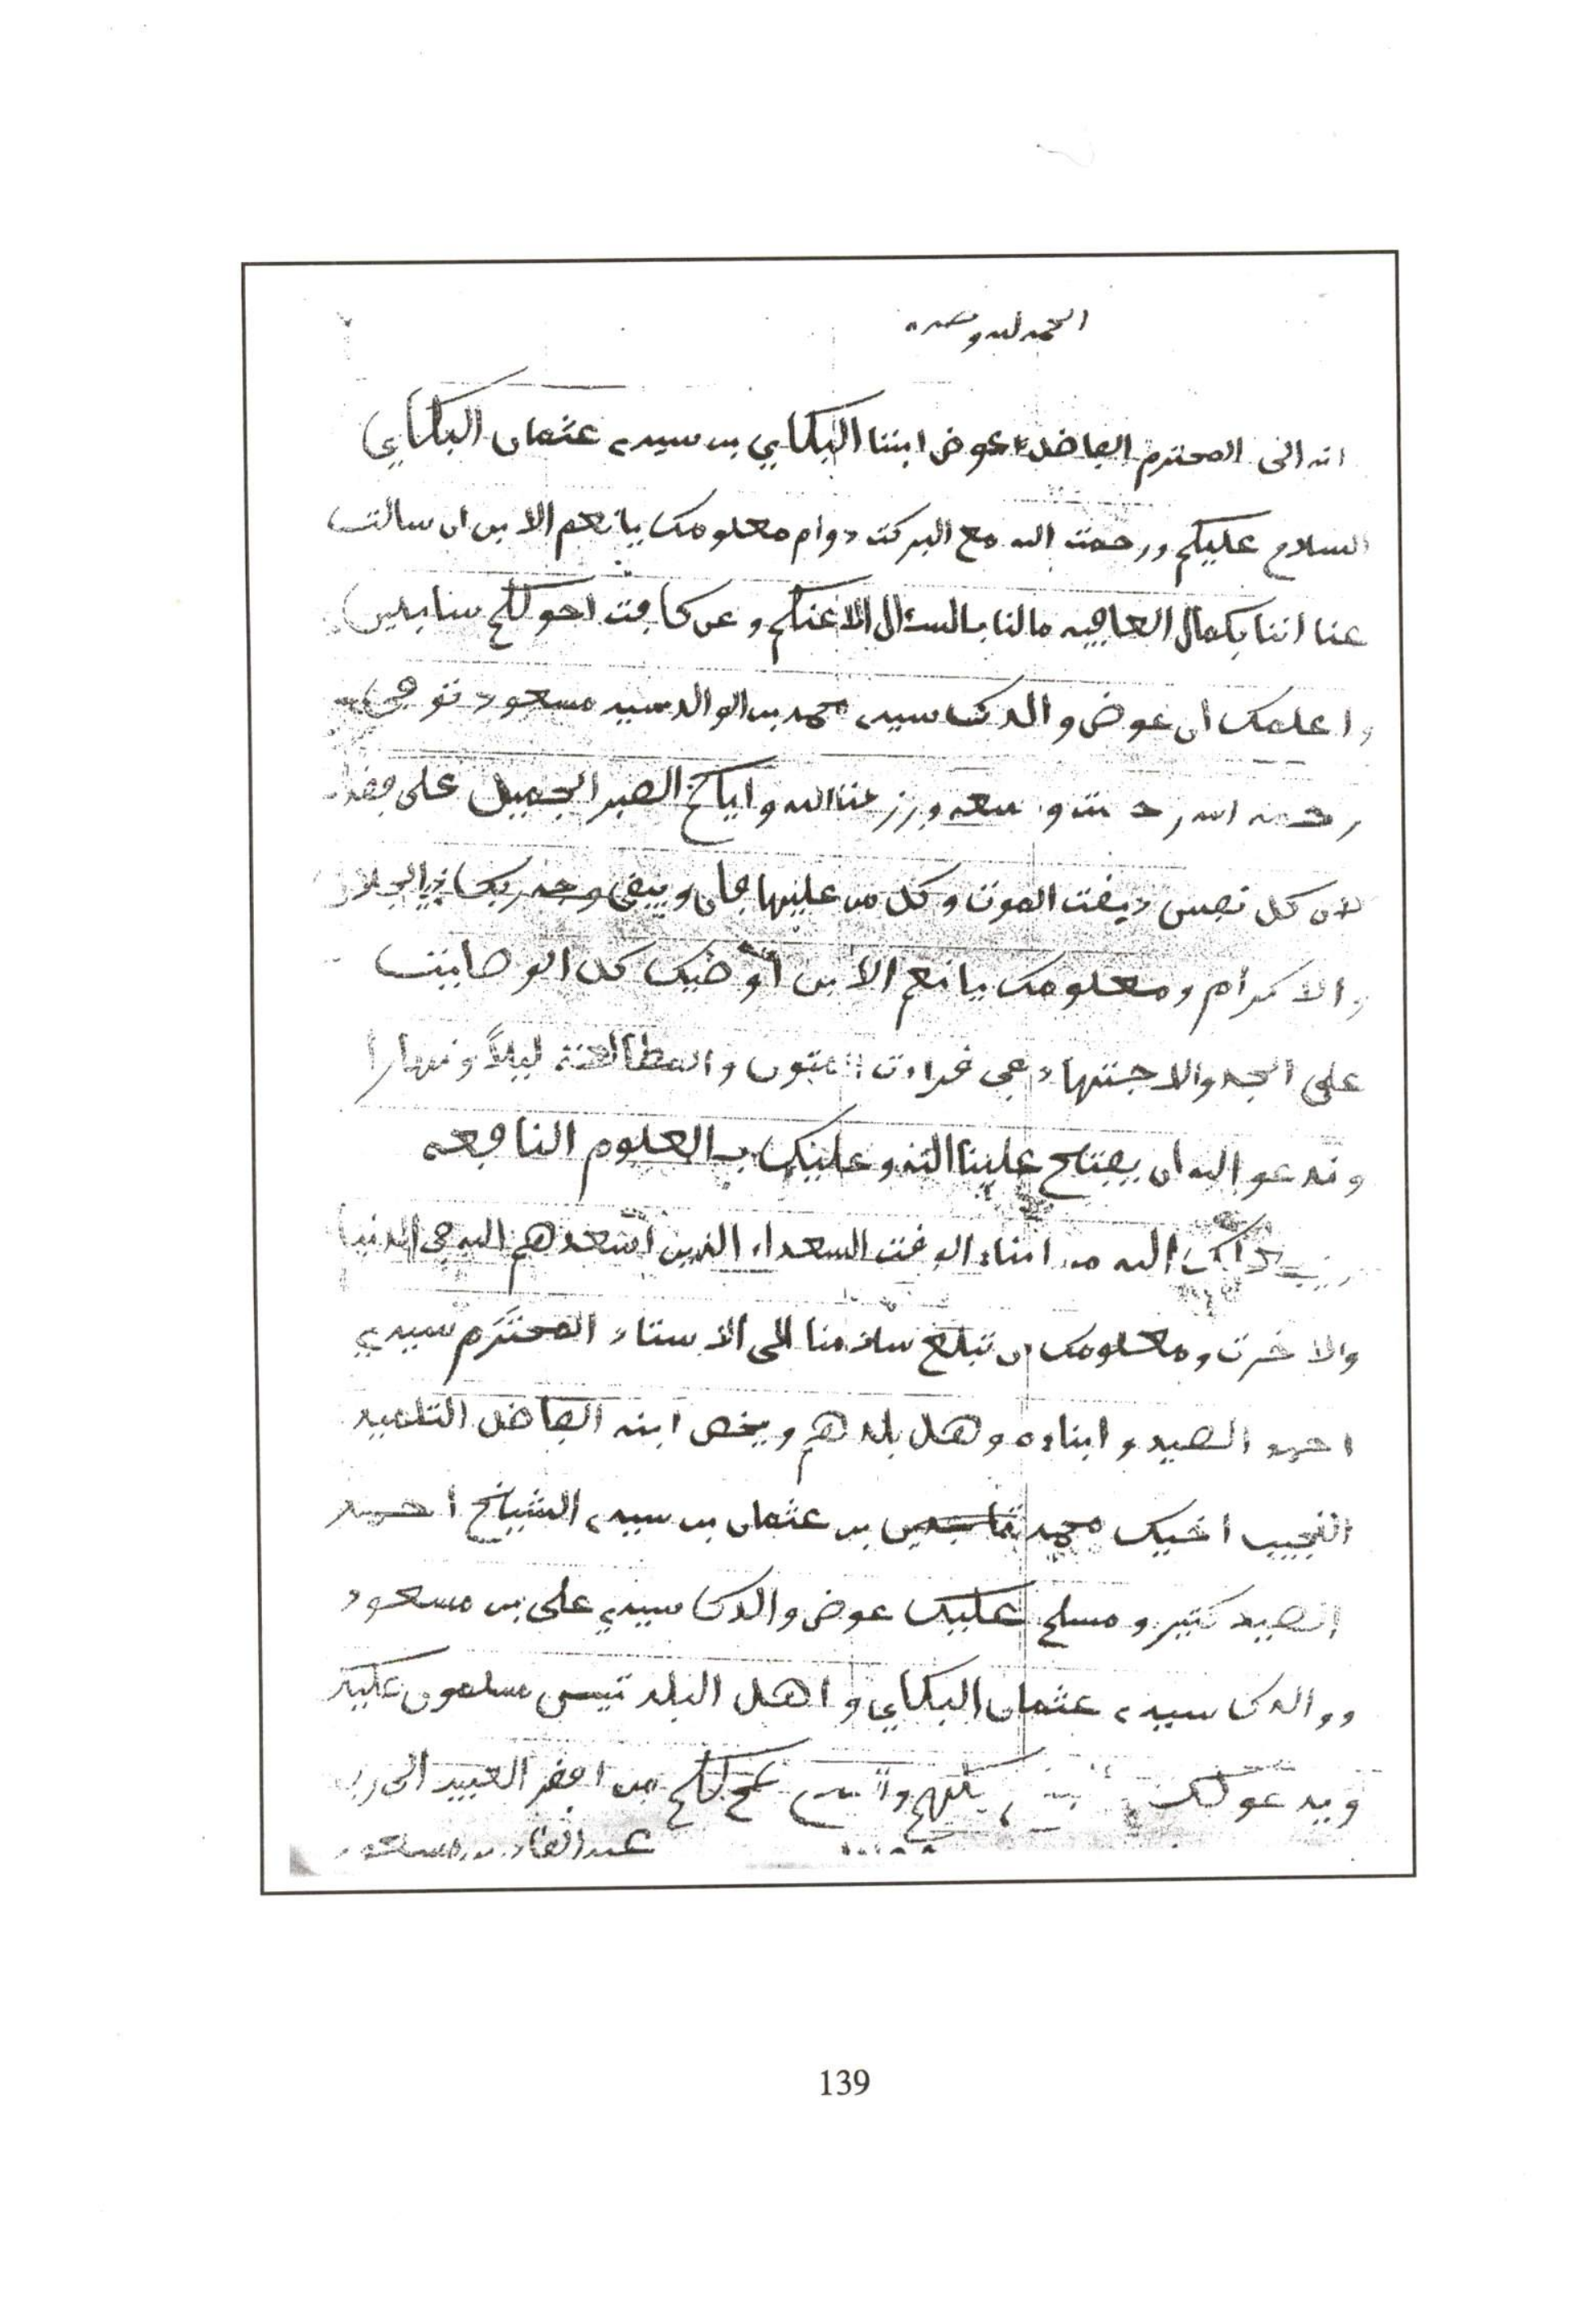 الحمد لله وحده
انه الى المحترم الفاضل عوض ابننا البكاي بن سيدي عثمان البكاي
السلام عليكم ورحمت الله مع البركت دوام معلومك يا نعم الابن ان سالت
عنا اننا بكمال العافيه مالنا بالسئوال الا عنكم وعن كافت احولكم سايلين
واعلمك ان عوض والدك سيدي محمد بن الوالد سيد مسعود توفي
رحمه الله رحمت وسعه ورزقنا الله واياكم الصبر الجميل على
لان كل نفس ذيقت الموت وكل من عليها فان ويبقى وجه ربك ذو الجلال
والاكرام ومعلومك يا نعم الابن اوضيك كل الوصايت
على الجد والاجتهاد في قراءت المتون والمطالعة ليلاً ونهارا
وندعو الله ان يفتح علينا الله وعليك بالعلوم النافعه
الله من ابناء الوقت السعداء الذين اسعدهم الله في الدنيا
والاخرت ومعلومك ان تبلغ سلامنا الى الاستاذ المحترم سيدي
احمد الصيد وابناءه وهل بلدهم ويخص ابنه الفاضل التلميد
النجيب اخيك محمد بن عثمان بن سيدي الشيخ احمد
الصيد كتير ومسلم عليك عوض والدك سيدي على بن مسعود
ووالدك سيدي عثمان البكاي واهل البلد تيسن مسلمون عليك
ويدعو لك كلهم من افقر العبيد الى ربه
عبد القادر بن مسعود
139